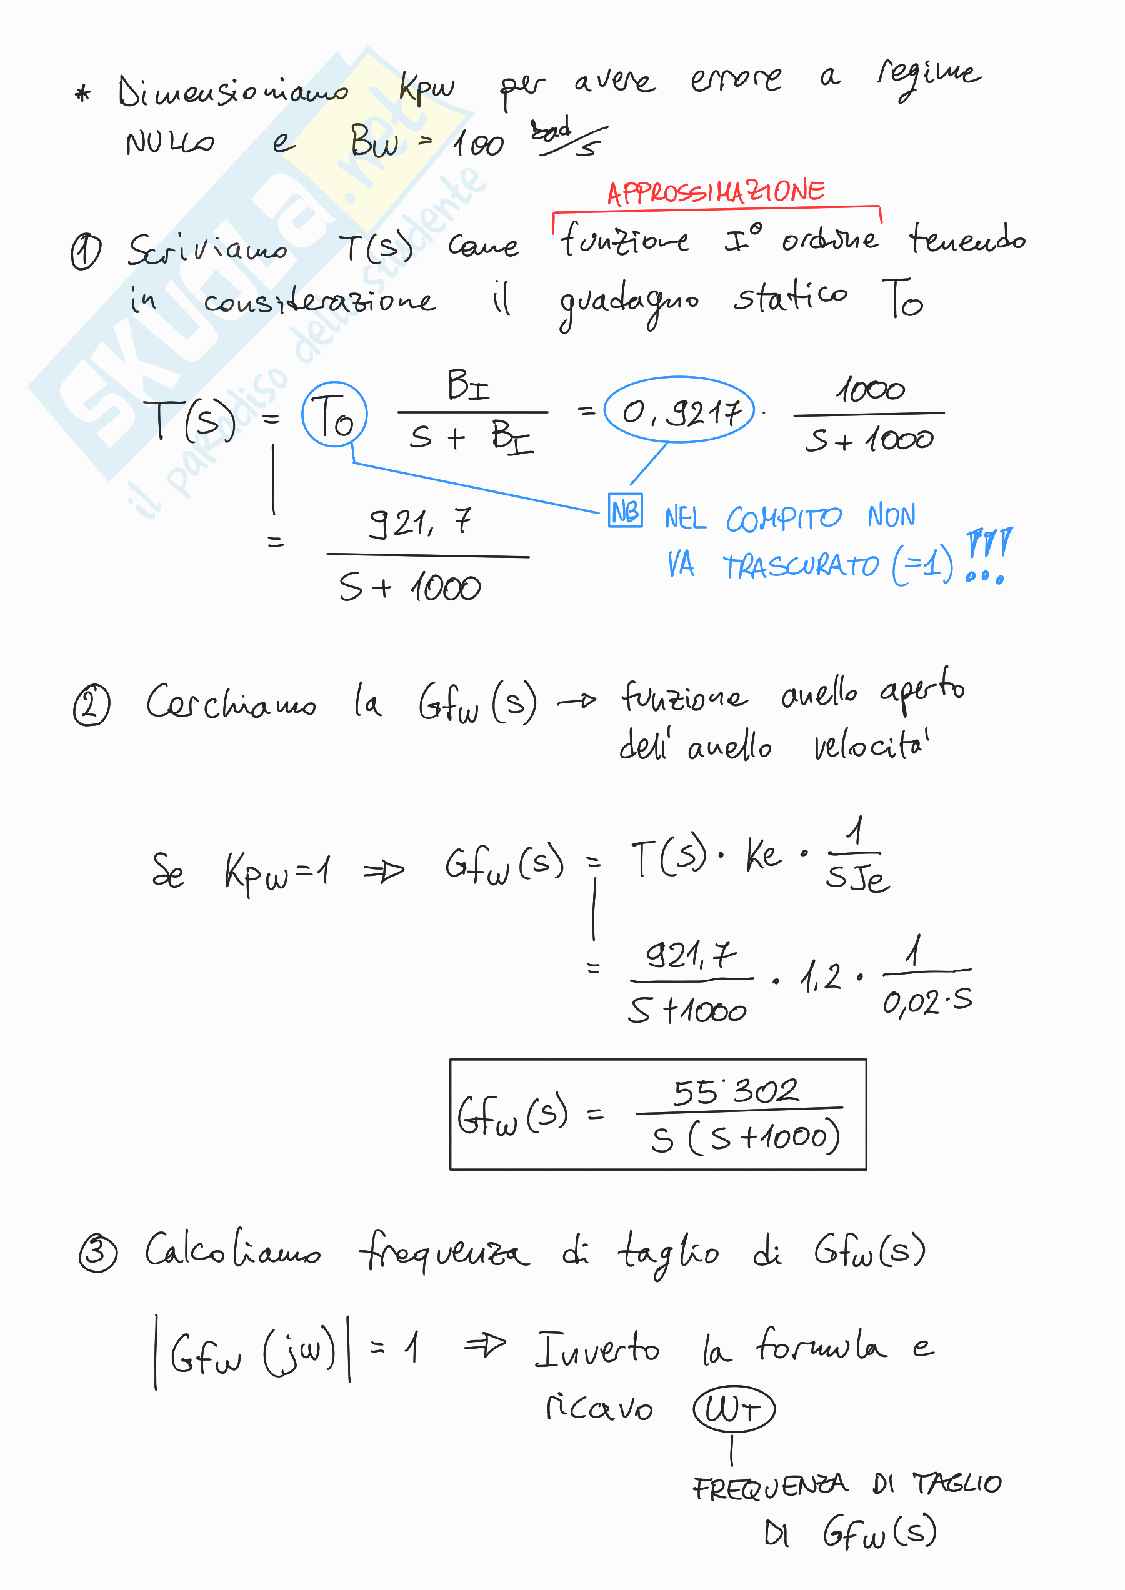 * Dimensioniamo Kpw per avere errore a regime
NULLO e Bw = 100 rad/s
APPROSSIMAZIONE
① Scriviamo T(s) come funzione I° ordine tenendo
in considerazione il guadagno statico To
T(s) = To BI / (S + BI) = 0,9217 · 1000 / (S + 1000)
= 921,7 / (S + 1000)
NB NEL COMPITO NON
VA TRASCURATO (=1) !!!
② Cerchiamo la Gfw(s) → funzione anello aperto
dell'anello velocita'
Se Kpw=1 ⇒ Gfw(s) = T(s) · Ke · 1 / SJe
= 921,7 / (S+1000) · 1,2 · 1 / (0,02·S)
Gfw(s) = 55˙302 / (S (S+1000))
③ Calcoliamo frequenza di taglio di Gfw(s)
|Gfw (jw)| = 1 ⇒ Inverto la formula e
ricavo WT
FREQUENZA DI TAGLIO
DI Gfw(s)
SKUOLA.net
il paradiso dello studente